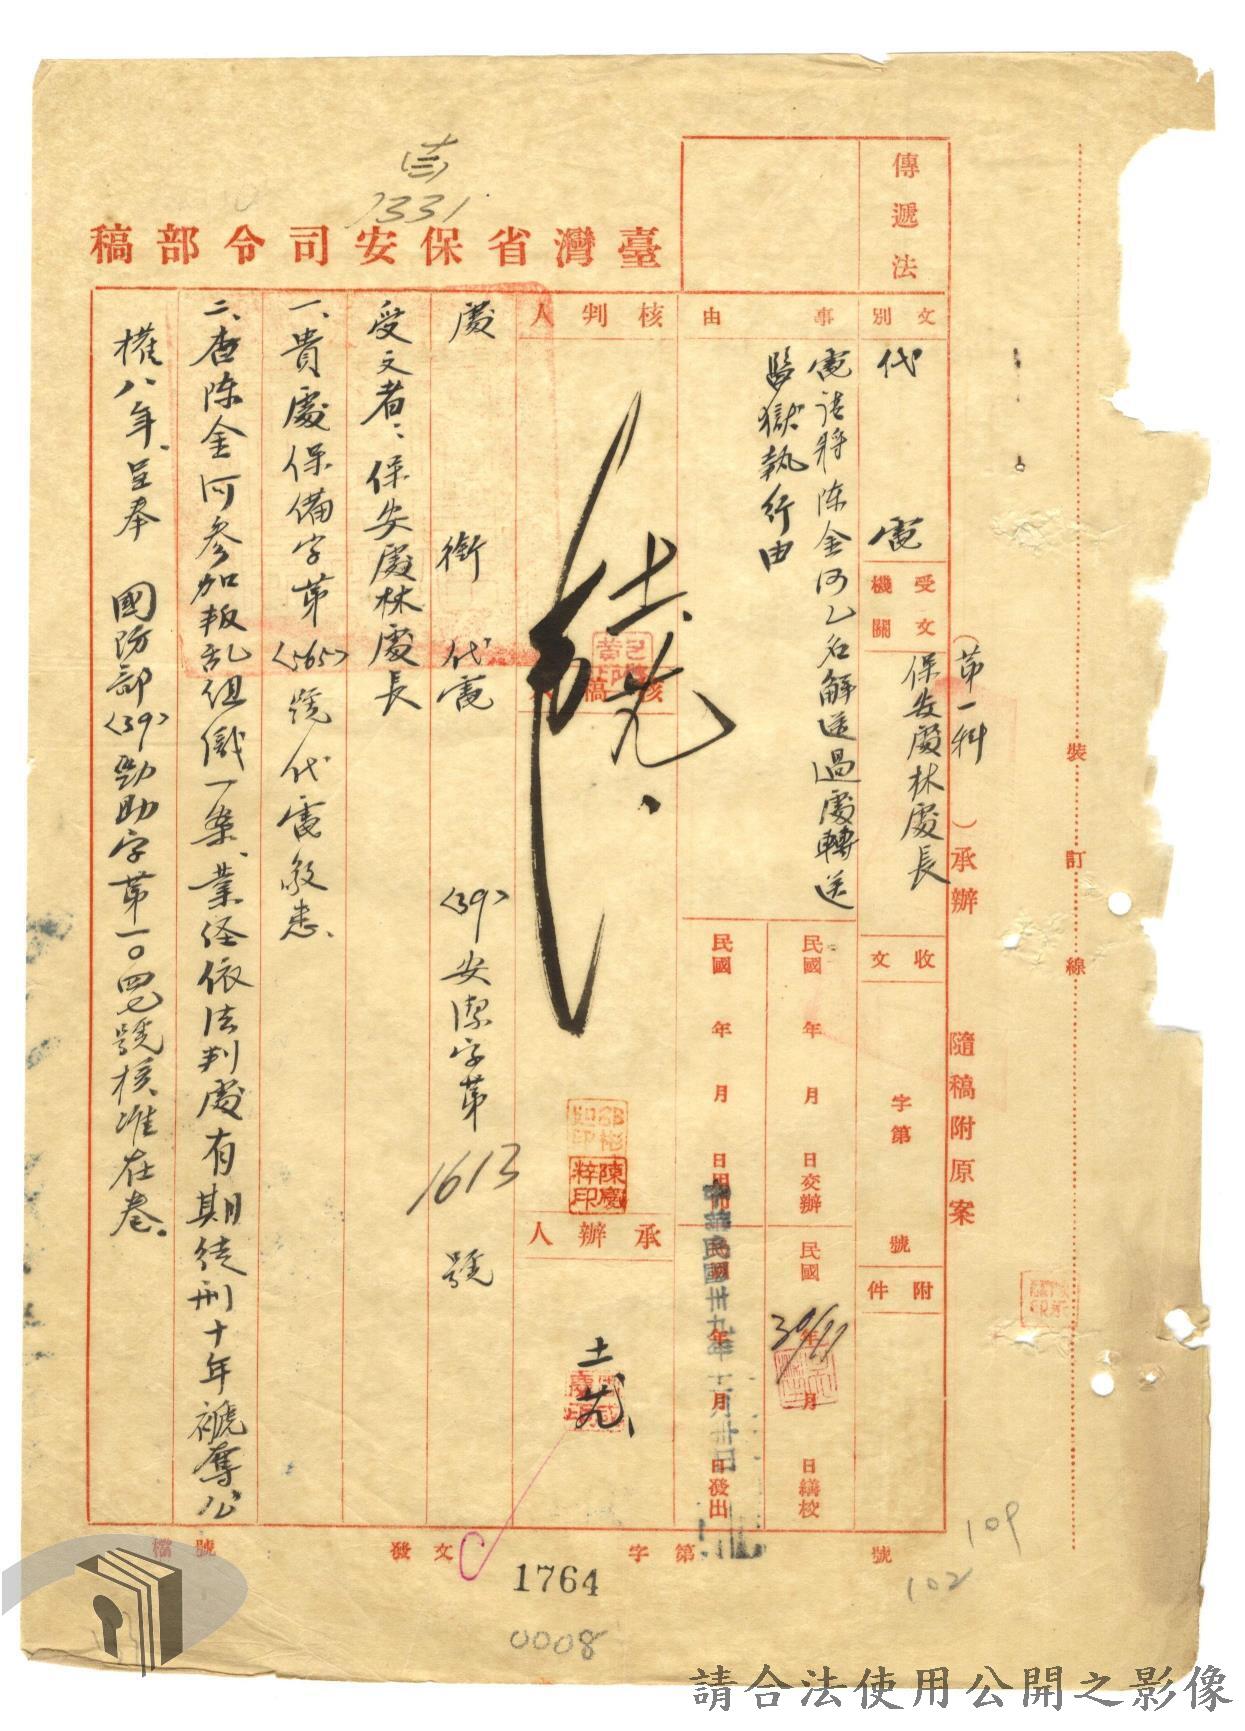 裝訂線
（第一科）承辦 隨稿附原案
傳遞法
文別 代電
受文機關 保安處林處長
收文 字第 號
附件
事由 電請將陈金河乙名解送過處轉送
監獄執行由
民國 年 月 日交辦
民國 年 月 日繕校
39/11
民國 年 月 日用印
民國 年 月 日發出
中華民國卅九年
核判人
核稿人
承辦人
陳慶粹印
臺灣省保安司令部稿
7331
處銜代電 〈39〉安潔字第1613號
受文者：保安處林處長
一、貴處保備字第〈565〉號代電敬悉.
二、查陈金河参加叛乱组織一案、業経依法判處有期徒刑十年褫奪公
權八年、呈奉 國防部〈39〉勁助字第一〇四七號核准在卷.
檔號
發文 字第 號
1764
0008
109
102
請合法使用公開之影像